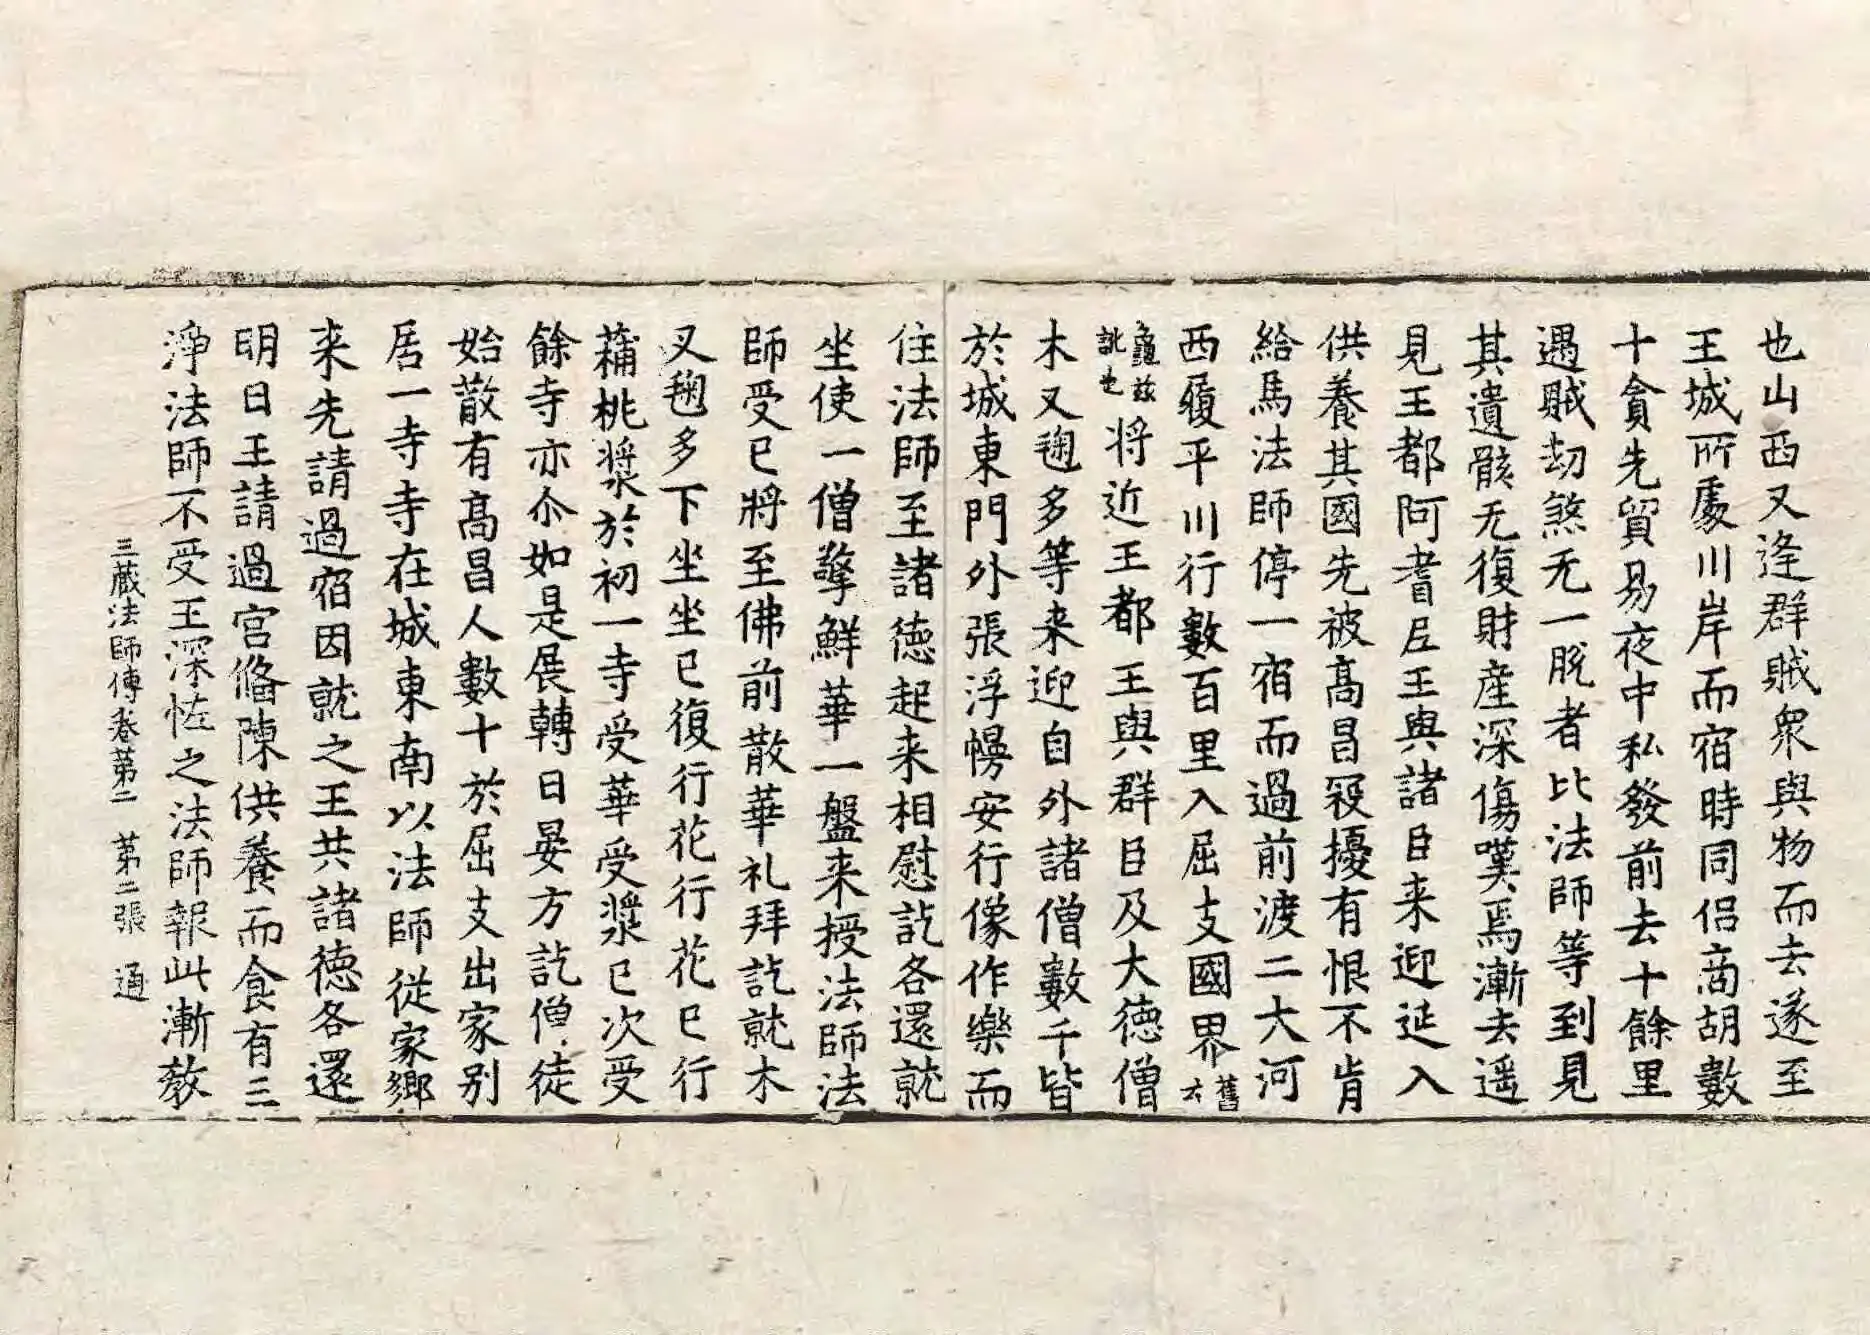 也山西又逢群賊衆與物而去遂至
王城所處川岸而宿時同侣商胡數
十貪先貿易夜中私發前去十餘里
遇賊劫煞无一脫者比法師等到見
其遺骸无復財産深傷嘆焉漸去遥
見王都阿耆尼王與諸臣来迎延入
供養其國先被高昌寇擾有恨不肯
給馬法師停一宿而過前渡二大河
西履平川行數百里入屈支國界舊云
龜兹訛也将近王都王與群臣及大德僧
木叉毱多等来迎自外諸僧數千皆
於城東門外張浮幔安行像作樂而
住法師至諸德起来相慰訖各還就
坐使一僧擎鮮華一盤来授法師法
師受已將至佛前散華礼拜訖就木
叉毱多下坐坐已復行花行花已行
蒱桃漿於初一寺受華受漿已次受
餘寺亦尒如是展轉日晏方訖僧徒
始散有高昌人數十於屈支出家别
居一寺寺在城東南以法師從家鄉
来先請過宿因就之王共諸德各還
明日王請過宫俻陳供養而食有三
淨法師不受王深恠之法師報此漸教
三蔵法師傳卷苐二 苐二張 通